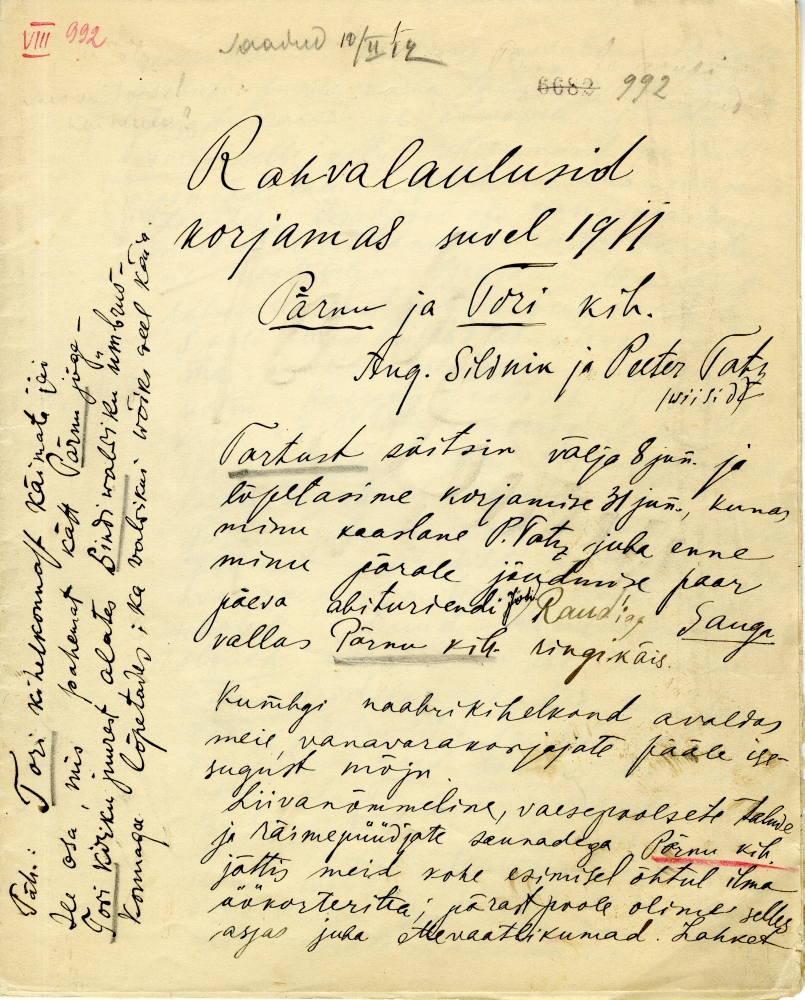 VIII 992
Saadud 10/II 12
6682 992
Rahvalaulusid
korjamas suvel 1911
Pärnu ja Tori kih.
Aug. Sildnik ja Peeter Tatz
(wiisid)
Tartust sõitsin välja 8 jun. ja
lõpetasime korjamise 31 jun., kunas
minu kaaslane P. Tatz juba enne
minu pärale jõudmise paar
päeva abituriendi Joh. Raudiga Sauga
vallas Pärnu kih. ringi käis.
Kumbgi naabrikihelkond avaldas
meie, vanavarakorjajate pääle ise-
sugust mõju.
Liivanõmmeline, vaesepoolsete talude
ja räimepüüdjate saunadega Pärnu kih.
jättis meid kohe esimisel õhtul ilma
öökorterita; pärastpoole olime selles
asjas juba ettevaatlikumad. Lahket
Täh.: Tori kihelkonnast käimata jäi
see osa, mis pahemat kätt Pärnu jõge-
Tori kiriku juurest alates Sindi vabriku ümbrus-
konnaga lõpetades; ka vabrikus võiks veel käia.